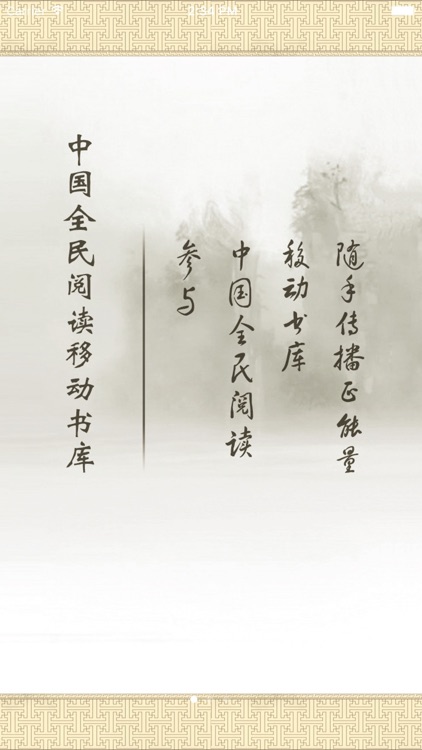 中国全民阅读移动书库
参与
中国全民阅读
移动书库
随手传播正能量